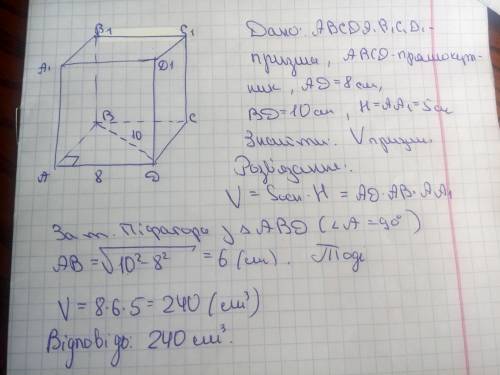 B1
C1
A1
D1
B
C
10
A
8
D
Дано: ABCDA1B1C1D1-
призма, ABCD-прямокут-
ник, AD=8см,
BD=10см, H=AA1=5см
Знайти: V призми.
Розв'язання:
V = Sосн·H = AD·AB·AA1
За т. Піфагора у △ABD (∠A=90°)
AB = √10²-8² = 6 (см). Тоді
V = 8·6·5 = 240 (см³)
Відповідь: 240 см³.